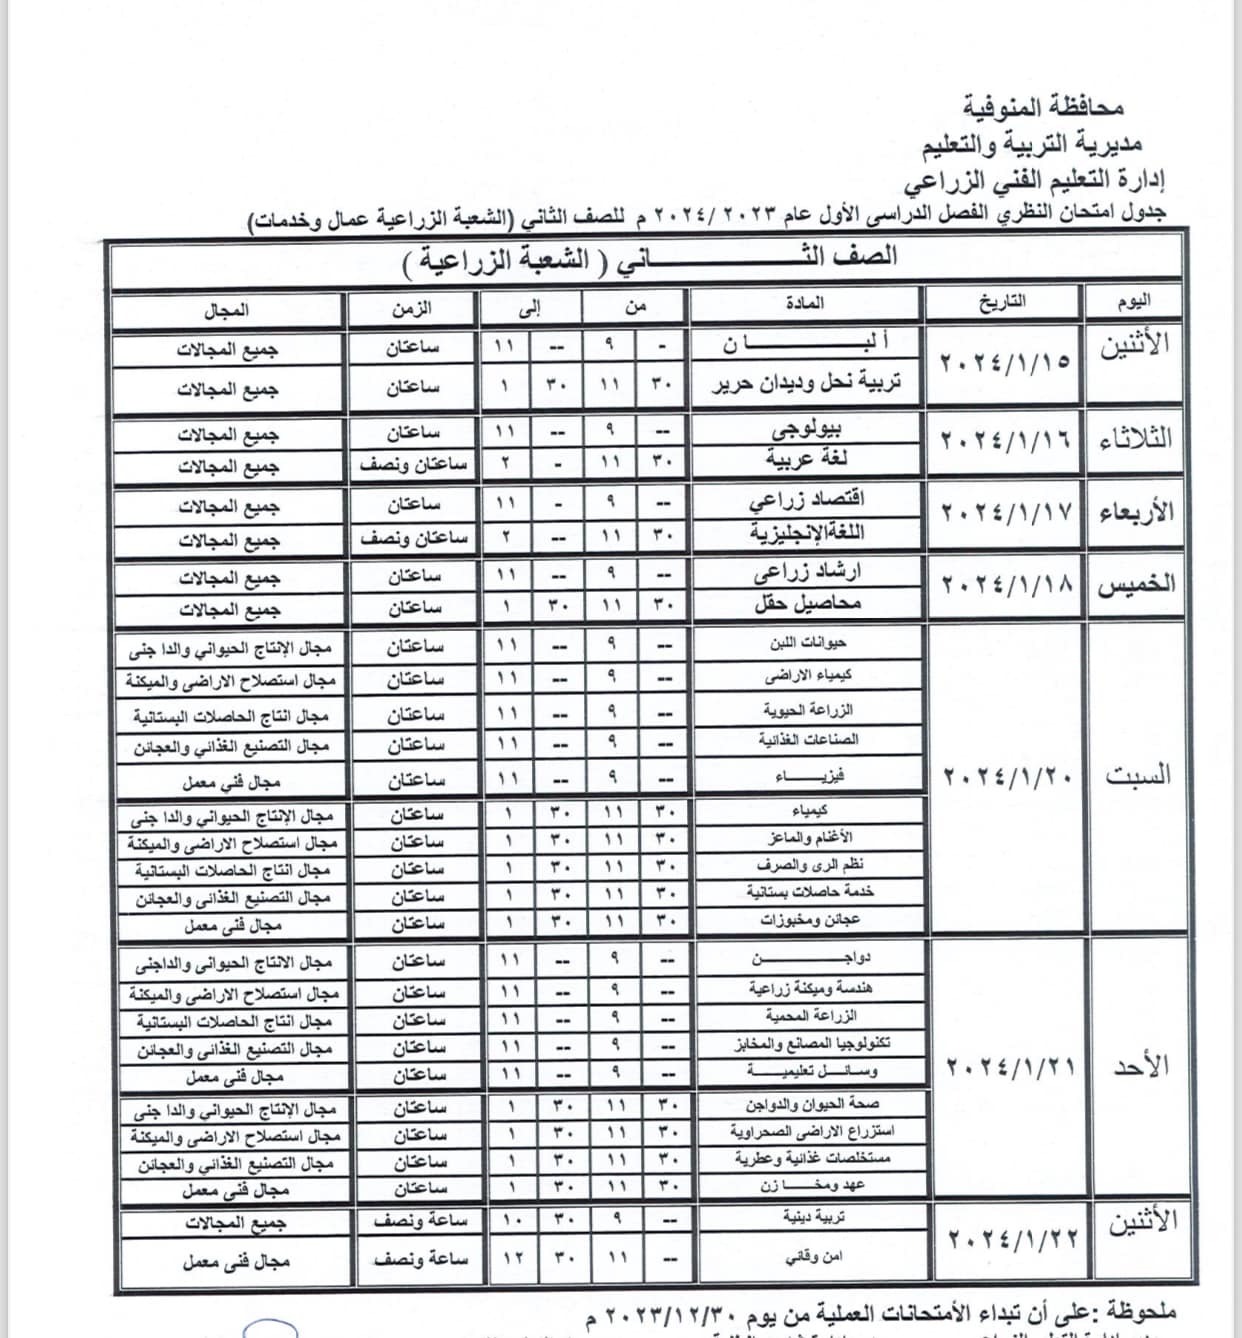 محافظة المنوفية
مديرية التربية والتعليم
إدارة التعليم الفني الزراعي
جدول امتحان النظري الفصل الدراسى الأول عام ٢٠٢٣ /٢٠٢٤ م للصف الثاني (الشعبة الزراعية عمال وخدمات)
الصف الثـــــــــــاني ( الشعبة الزراعية )
اليوم التاريخ المادة من إلى الزمن المجال
الأثنين ٢٠٢٤/١/١٥ ألبـــــــــان - ٩ -- ١١ ساعتان جميع المجالات
تربية نحل وديدان حرير ٣٠ ١١ ٣٠ ١ ساعتان جميع المجالات
الثلاثاء ٢٠٢٤/١/١٦ بيولوجى -- ٩ -- ١١ ساعتان جميع المجالات
لغة عربية ٣٠ ١١ - ٢ ساعتان ونصف جميع المجالات
الأربعاء ٢٠٢٤/١/١٧ اقتصاد زراعي -- ٩ - ١١ ساعتان جميع المجالات
اللغةالإنجليزية ٣٠ ١١ -- ٢ ساعتان ونصف جميع المجالات
الخميس ٢٠٢٤/١/١٨ ارشاد زراعى -- ٩ -- ١١ ساعتان جميع المجالات
محاصيل حقل ٣٠ ١١ ٣٠ ١ ساعتان جميع المجالات
السبت ٢٠٢٤/١/٢٠ حيوانات اللبن -- ٩ -- ١١ ساعتان مجال الإنتاج الحيواني والدا جنى
كيمياء الاراضى -- ٩ -- ١١ ساعتان مجال استصلاح الاراضى والميكنة
الزراعة الحيوية -- ٩ -- ١١ ساعتان مجال انتاج الحاصلات البستانية
الصناعات الغذائية -- ٩ -- ١١ ساعتان مجال التصنيع الغذائي والعجائن
فيزيـــــاء -- ٩ -- ١١ ساعتان مجال فني معمل
كيمياء ٣٠ ١١ ٣٠ ١ ساعتان مجال الإنتاج الحيواني والدا جنى
الأغنام والماعز ٣٠ ١١ ٣٠ ١ ساعتان مجال استصلاح الاراضى والميكنة
نظم الرى والصرف ٣٠ ١١ ٣٠ ١ ساعتان مجال انتاج الحاصلات البستانية
خدمة حاصلات بستانية ٣٠ ١١ ٣٠ ١ ساعتان مجال التصنيع الغذائى والعجائن
عجائن ومخبوزات ٣٠ ١١ ٣٠ ١ ساعتان مجال فنى معمل
الأحد ٢٠٢٤/١/٢١ دواجـــــــــن -- ٩ -- ١١ ساعتان مجال الانتاج الحيوانى والداجنى
هندسة وميكنة زراعية -- ٩ -- ١١ ساعتان مجال استصلاح الاراضى والميكنة
الزراعة المحمية -- ٩ -- ١١ ساعتان مجال انتاج الحاصلات البستانية
تكنولوجيا المصانع والمخابز -- ٩ -- ١١ ساعتان مجال التصنيع الغذائى والعجائن
وســائـــل تعليميـــــة -- ٩ -- ١١ ساعتان مجال فنى معمل
صحة الحيوان والدواجن ٣٠ ١١ ٣٠ ١ ساعتان مجال الإنتاج الحيواني والدا جنى
استزراع الاراضى الصحراوية ٣٠ ١١ ٣٠ ١ ساعتان مجال استصلاح الاراضى والميكنة
مستخلصات غذائية وعطرية ٣٠ ١١ ٣٠ ١ ساعتان مجال التصنيع الغذائى والعجائن
عهد ومخــــازن ٣٠ ١١ ٣٠ ١ ساعتان مجال فنى معمل
الأثنين ٢٠٢٤/١/٢٢ تربية دينية -- ٩ ٣٠ ١٠ ساعة ونصف جميع المجالات
امن وقائي -- ١١ ٣٠ ١٢ ساعة ونصف مجال فنى معمل
ملحوظة :على أن تبداء الأمتحانات العملية من يوم ٢٠٢٣/١٢/٣٠ م